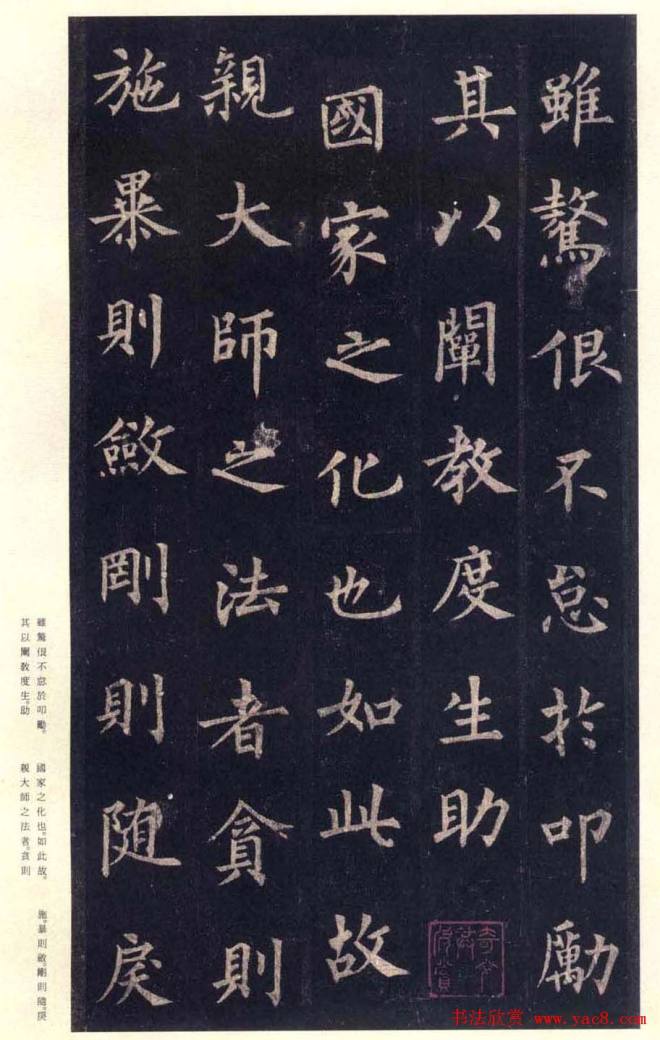 雖驁佷不怠於叩勵
其以闡教度生助
國家之化也如此故
親大師之法者貪則
施暴則斂剛則随戾
雖驁佷不怠於叩勵。
其以闡教度生。助
國家之化也。如此故。
親大師之法者。貪則
施。暴則斂。剛則隨。戾
书法欣赏 www.yac8.com